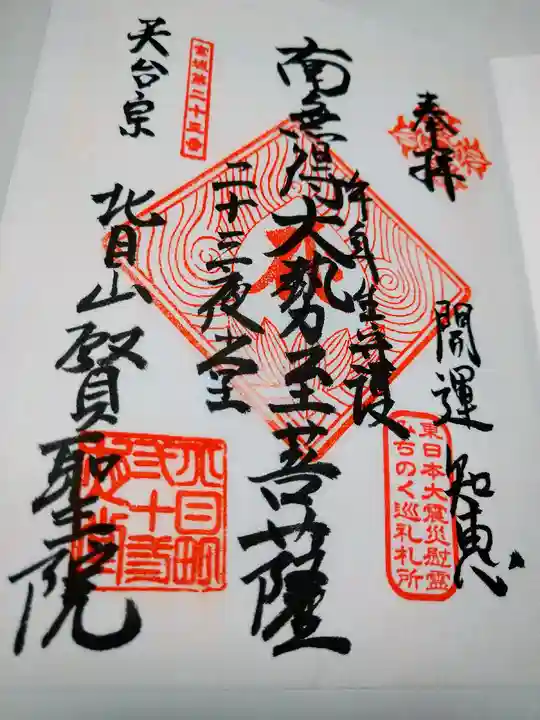 奉拝
開運 知恵
東日本大震災慰霊
みちのく巡礼札所
午年生守護
南無得大勢至菩薩
二十三夜堂
宮城第二十三番
天台宗
北目山賢聖院